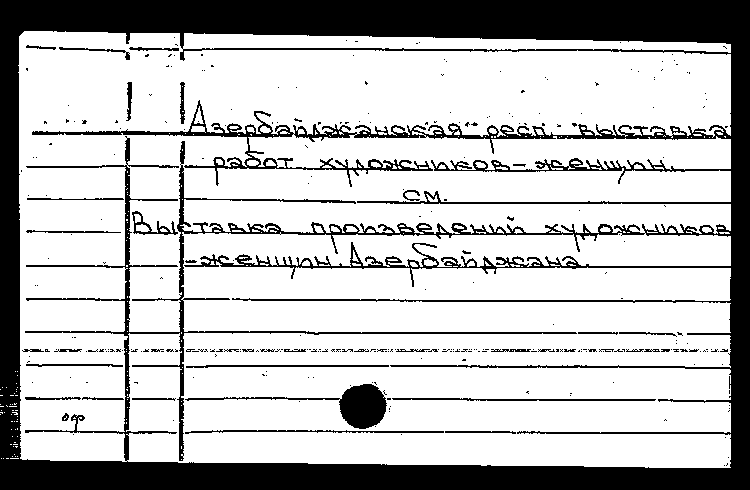 Азербайджанская респ. выставка
работ художников-женщин.
см.
Выставка произведений художников
-женщин. Азербайджана.
оф